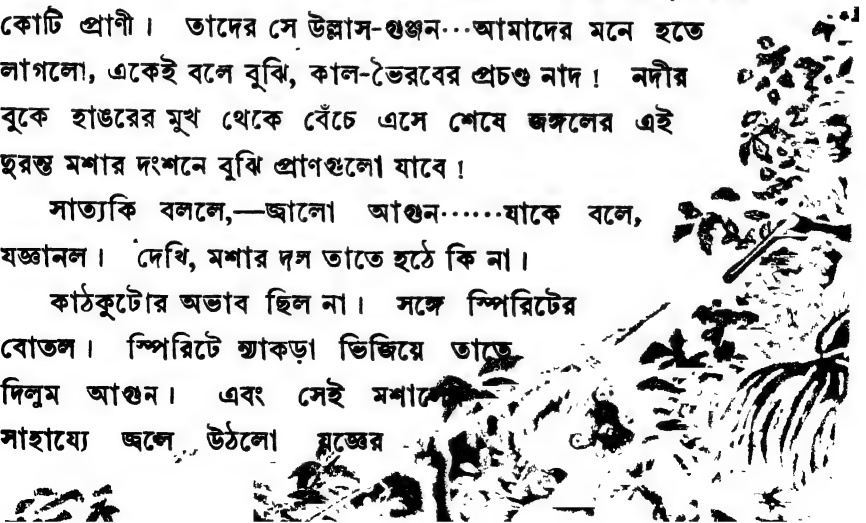 কোটি প্রাণী। তাদের সে উল্লাস-গুঞ্জন···আমাদের মনে হতে
লাগলো, একেই বলে বুঝি, কাল-ভৈরবের প্রচণ্ড নাদ! নদীর
বুকে হাঙরের মুখ থেকে বেঁচে এসে শেষে জঙ্গলের এই
দুরন্ত মশার দংশনে বুঝি প্রাণগুলো যাবে!
সাত্যকি বললে,—জ্বালো আগুন······যাকে বলে,
যজ্ঞানল। দেখি, মশার দল তাতে হঠে কি না।
কাঠকুটোর অভাব ছিল না। সঙ্গে স্পিরিটের
বোতল। স্পিরিটে ন্যাকড়া ভিজিয়ে তাতে
দিলুম আগুন। এবং সেই মশালের
সাহায্যে জ্বলে উঠলো যজ্ঞের